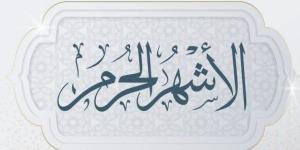 الأشْهُر الحرم